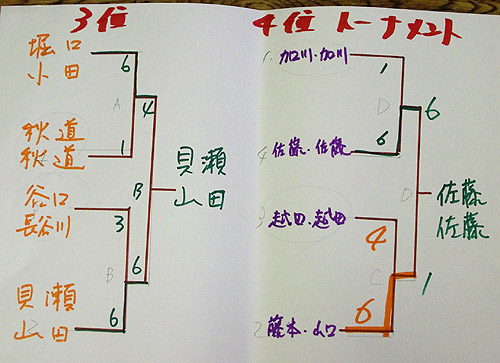 3位
堀口
小田
6
A
4
秋道
秋道
1
B
貝瀬
山田
谷口
長谷川
3
B
6
貝瀬
山田
6
4位トーナメント
1 加川・加川
1
D
6
4 佐藤・佐藤
6
D
佐藤
佐藤
3 越田・越田
4
C
1
2 藤本・山口
6